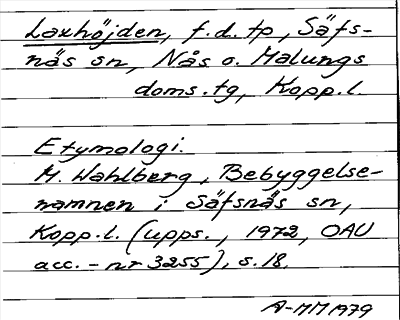 Laxhöjden, f.d. tp, Säfs-
näs sn, Nås o. Malungs
doms.tg, Kopp.l.
Etymologi.
M. Wahlberg, Bebyggelse-
namnen i Säfsnäs sn,
Kopp.l. (Upps., 1972, OAU
acc.-nr 3255), s. 18.
A-MM 1979